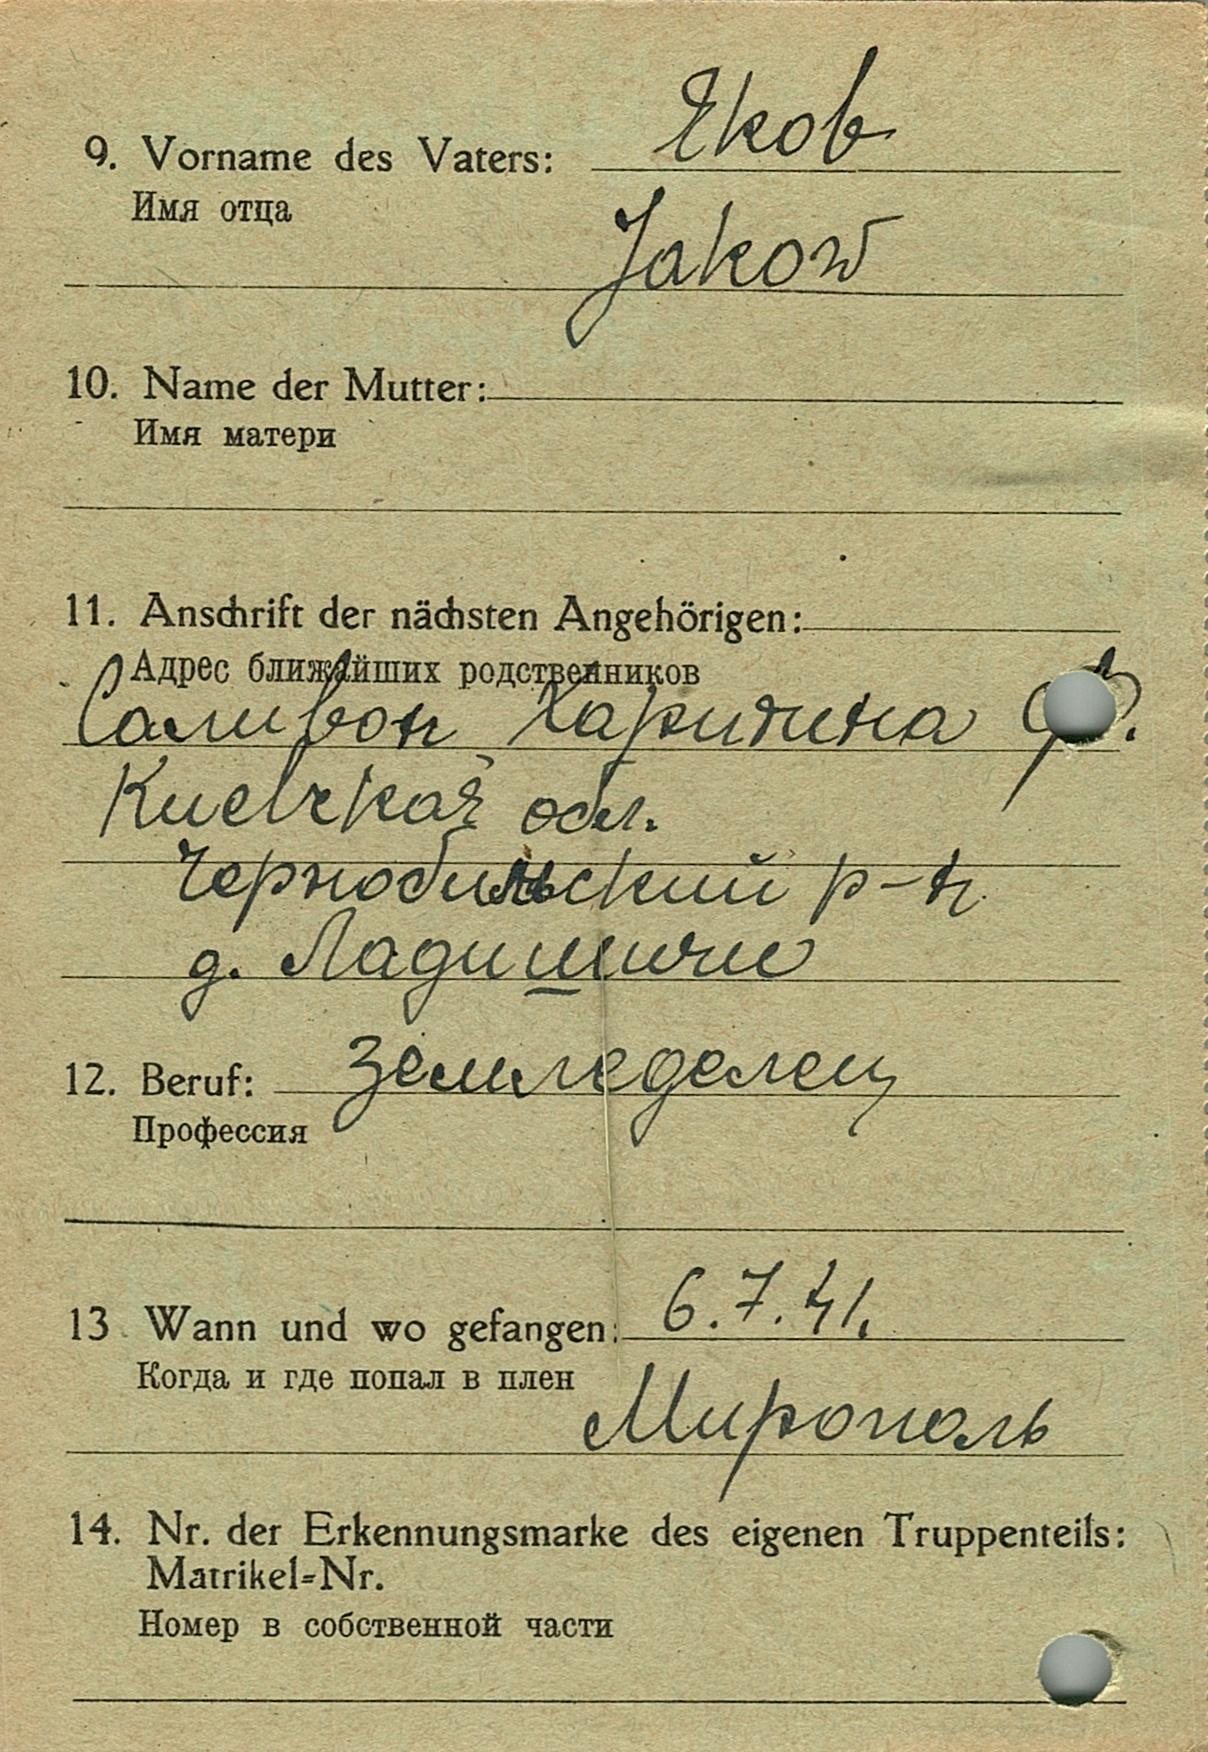 9. Vorname des Vaters: Яков
Имя отца
Jakow
10. Name der Mutter:
Имя матери
11. Anschrift der nächsten Angehörigen:
Адрес ближайших родственников
Саливон Харитина Ф.
Киевская обл.
Чернобильский р-н
д. Ладишичи
12. Beruf: Земледелец
Профессия
13 Wann und wo gefangen: 6.7.41.
Когда и где попал в плен
Мирополь
14. Nr. der Erkennungsmarke des eigenen Truppenteils:
Matrikel-Nr.
Номер в собственной части